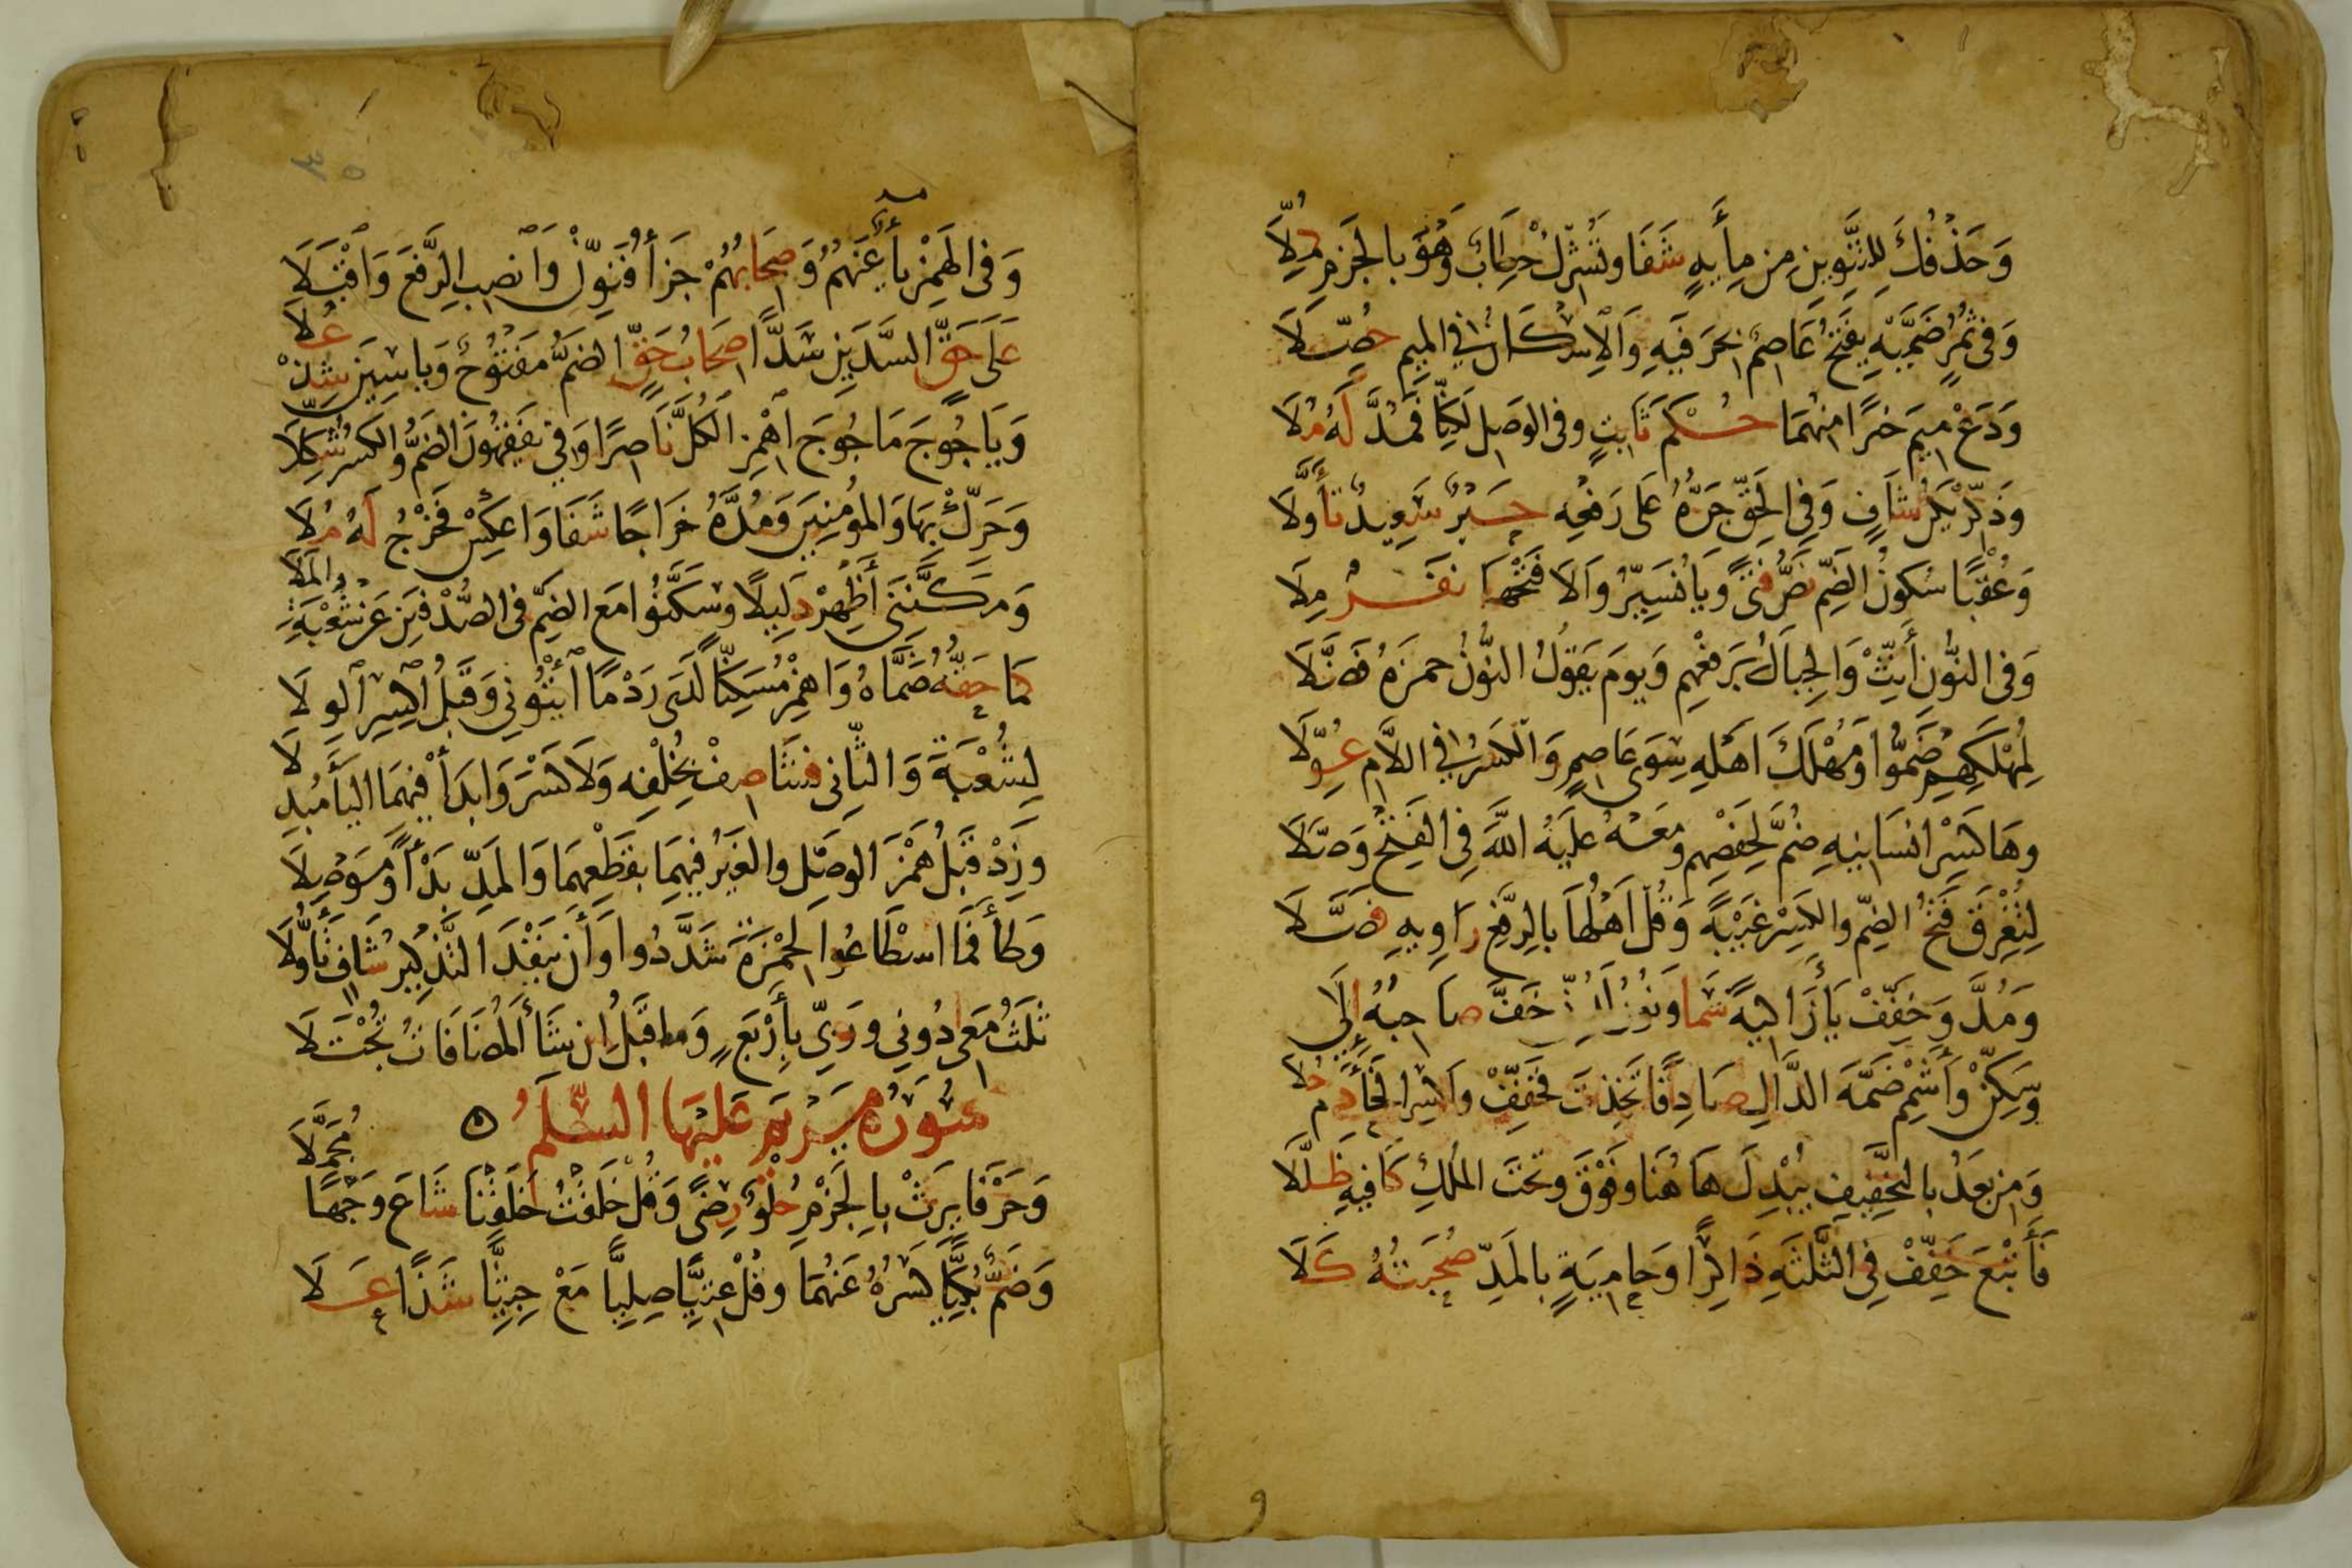 وَحَذْفُكَ لِلتَّنْوِينِ مِن مِأيَةٍ شَفَا وَتُشْرِكْ خِطَابٌ وَهُوَ بِالْجَزمِ مُلِّلَا
وَفِي ثُمُرٍ ضَمَّيْهِ يَفْتَحُ عَاصِمٌ بِحَرفَيهِ وَالْاِسْكَانُ فِي المِيمِ حُصِّلَا
وَدَعْ مِيمَ خَيرًا مِنْهُمَا حُكْمُ ثَابِتٍ وَفِي الوَصلِ لَكِنَّا فَمُدَّ لَهُ مُلَا
وَذَكِّرْ يَكُن شَافٍ وَفِي الحَقِّ جَرُّهُ عَلَى رَفْعِهِ حَبْرٌ سَعِيدٌ تَأَوَّلَا
وَعُقْبًا سُكُونُ الضَّمِّ نَصُّ فَتًى وَيَا نُسَيِّرُ وَالَا فَتْحَهَا نَفَرٌ مِلَا
وَفِي النُّونِ أَنِّثْ وَالْجِبَالُ بِرَفْعِهِم وَيَومَ يَقُولُ النُّونُ حمزَةُ فَضَّلَا
لِمُهْلَكِهِم ضَمُّوا وَمُهْلَكَ اَهلِهِ سِوَى عَاصِمٍ وَالْكَسْرُ فِي اللَّامِ عُوِّلَا
وهَا كَسْرِ انسَانِيهِ ضُمَّ لِحَفْصِهِم وَمَعْهُ عَلَيهُ اللهَ فِي الفَتْحِ وَصَّلَا
لِتُغْرِقَ فَتْحُ الضَّمِّ وَالكَسْرِ غَيْبَةً وَقُلْ اَهلُهَا بِالرَّفْعِ رَاوِيهِ فَصَّلَا
وَمُدَّ وَخَفِّفْ يَأَ زَاكِيَةً سَمَا وَنُونَ لَدُنِّي خَفَّ صَاحِبُهُ إِلَى
وَسَكِّنْ وَأَشْمِم ضَمَّةَ الدَّالِ صَادِقًا تَخِذتَ فَخَفِّفْ وَاكْسِرِ الخَأَ دُم حُلَا
وَمِن بَعدُ بِالتَّخْفِيفِ يُبْدِلَ هَاهُنَا وَفَوْقَ وَتَحْتَ المُلكِ كَافِيهِ ظَلَّلَا
فَأَتْبَعَ خَفِّفْ فِي الثَّلثَةِ ذَاكِرًا وَحَامِيَةٍ بِالمَدِّ صُحْبَتُهُ كَلَا
وَفِي الهَمْزِ يَأٌ عَنهُمُ وَصِحَابُهُمْ جَزَأُ فَنَوِّنْ وَانصِبِ الرَّفعَ وَاقْبَلَا
عَلَى حَقٍّ السَّدَّينِ سَدًّا صِحَابُ حَقٍّ الضَّمُّ مَفْتُوحٌ وَيَاسِينَ شِدْ عُلَا
وَيَاجُوجَ مَاجُوجَ اهْمِزِ الكُلَّ نَاصِرًا وَفِي يَفْقَهُونَ الضَمُّ وَالكَسْرُ شُكِّلَا
وَحَرِّكْ بِهَا وَالمُومِنِينَ وَمُدَّهُ خَرَاجًا شَفَا وَاعكِسْ فَخَرْجُ لَهُ مُلَا
وَمَكَّنَنِي أَظْهِرْ دَلِيلًا وَسَكَّنُوا مَعَ الضَمِّ فِي الصُّدْفَينِ عَن شُعْبَةَ المَلَا
كَمَا حَقُّهُ ضَمَّاهُ وَاهمِزْ مُسَكِّنًا لَدَى رَدْمًا أيتُونِي وَقَبلُ اكْسِرِ الوِلَا
لِشُعْبَةَ وَالثَّانِي فَشَا صِفْ بِخُلْفِهِ وَلَا كَسْرَ وَابدَأْ فِيهِمَا اليَأَ مُبْدِلَا
وَزِدْ قَبلُ هَمْزَ الوَصْلِ وَالغَيْرُ فِيهِمَا بِقَطعِهِمَا وَالمَدِّ بَدْأً وَمَوْصِلَا
وَطَأَ فَمَا اسطَاعُوا لِحَمْزَةَ شَدَّدُوا وَأَن يَنفَدَ التَّذكِيرُ شَافٍ تَأَوَّلَا
ثَلثٌ مَعِي دُونِي وَرَبِّي بِأَربَعٍ وَمَا قَبلُ اِن شَأَ المُضَافَاتُ تُجْتَلَا
سُورَةُ مَرْيَم عَلَيْهَا السَّلَمُ
وَحَرْفَا يَرِثْ بِالْجَزْمِ حُلْوُ رِضًى وَقُلْ خَلَقْتُ خَلَقْنَا شَاعَ وَجْهًا مُجَمَّلَا
وَضَمُّ بُكِيًّا كَسْرُهُ عَنهُمَا وَقُلْ عِتِيًّا صِلِيًّا مَعْ جِثِيًّا شَذًا عَلَا